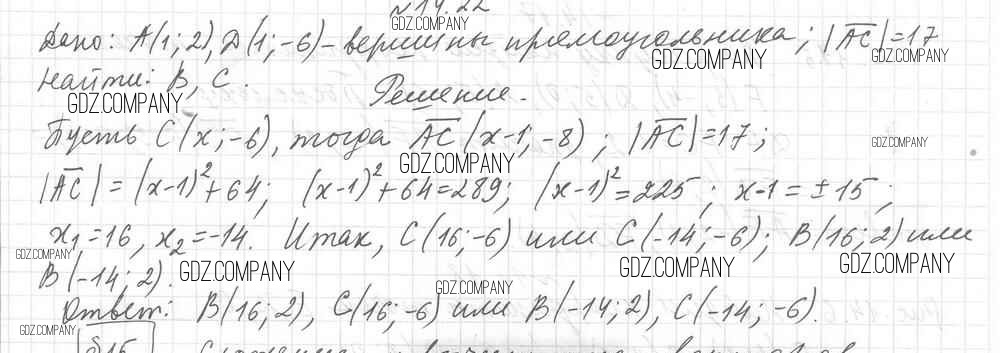 №14.22
GDZ.COMPANY
Дано: A(1; 2), D(1; -6) - вершины прямоугольника; |AC| = 17
GDZ.COMPANY GDZ.COMPANY
Найти: B, C.
GDZ.COMPANY
Решение.
Пусть C(x; -6), тогда AC(x-1; -8); |AC| = 17;
GDZ.COMPANY GDZ.COMPANY
|AC| = (x-1)²+64; (x-1)²+64=289; (x-1)²=225; x-1=±15;
x₁=16, x₂=-14. Итак, C(16; -6) или C(-14; -6); B(16; 2) или
GDZ.COMPANY
B(-14; 2).
GDZ.COMPANY GDZ.COMPANY GDZ.COMPANY
GDZ.COMPANY
Ответ: B(16; 2), C(16; -6) или B(-14; 2), C(-14; -6).
GDZ.COMPANY
§15